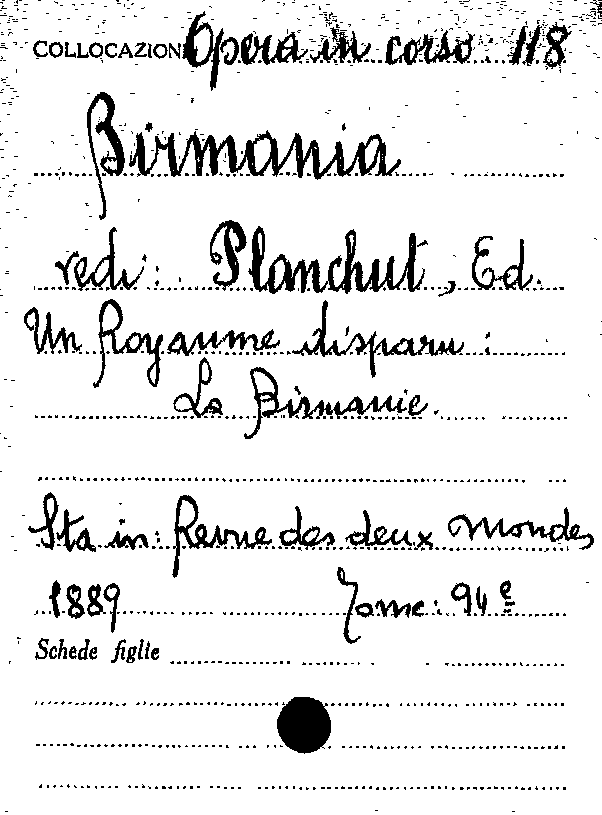 COLLOCAZION Opera in corso 118
Birmania
vedi: Planchut, Ed.
Un Royaume disparu:
La Birmanie.
Sta in: Revue des deux Mondes
1889 Tome: 94e
Schede figlie